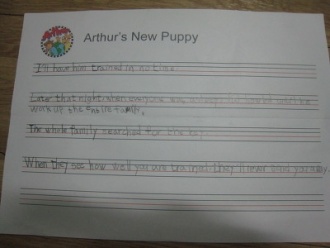 Arthur's New Puppy
I'll have him trained in no time.
Later that night when everyone was
woke up the entire family.
The whole family searched for the key.
When they see how well you are trained they'll never send you away